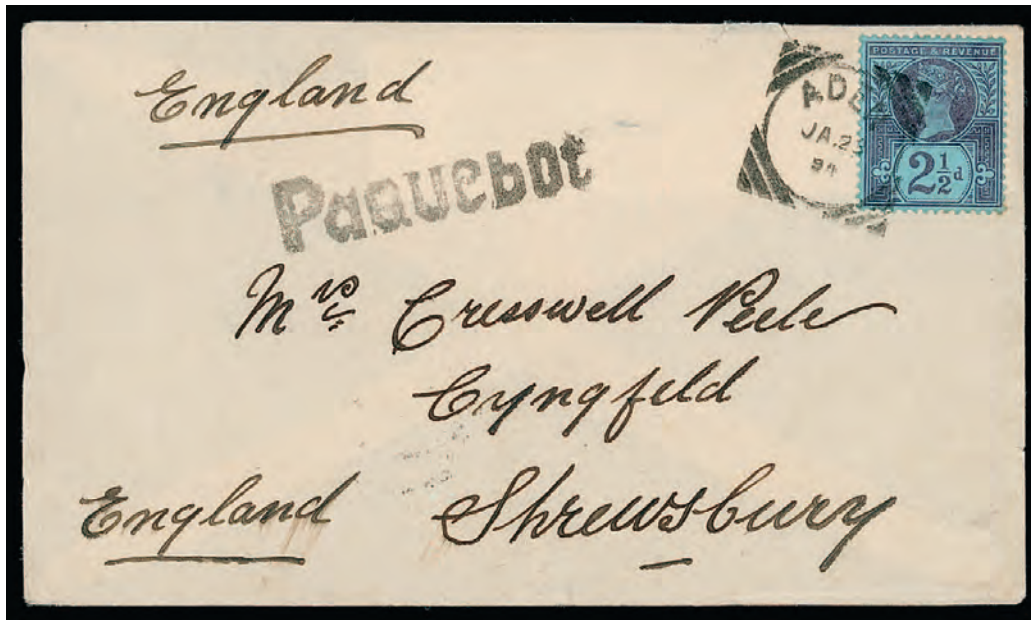 England
Paquebot
POSTAGE & REVENUE
2½d
JA.23
94
Mrs Cresswell Peele
Cyngfeld
England Shrewsbury